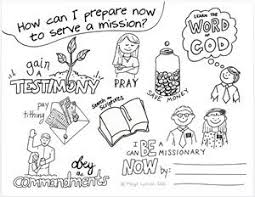 How can I prepare now
to serve a mission?
LEARN THE
WORD
OF
GOD
gain
a
TESTIMONY
PRAY
SAVE MONEY
pay
tithing
Search the
Scriptures
I
CAN
BE
A
MISSIONARY
NOW by:
obey
the
Commandments